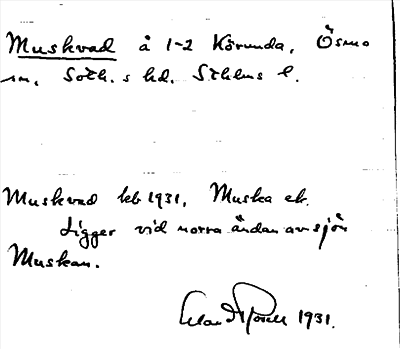 Muskvad å 1-2 Körunda, Ösmo
sn. Soth. s hd. Sthlms l.
Muskvad kb 1931, Muska ek.
Ligger vid norra ändan av sjön
Muskan.
1931.